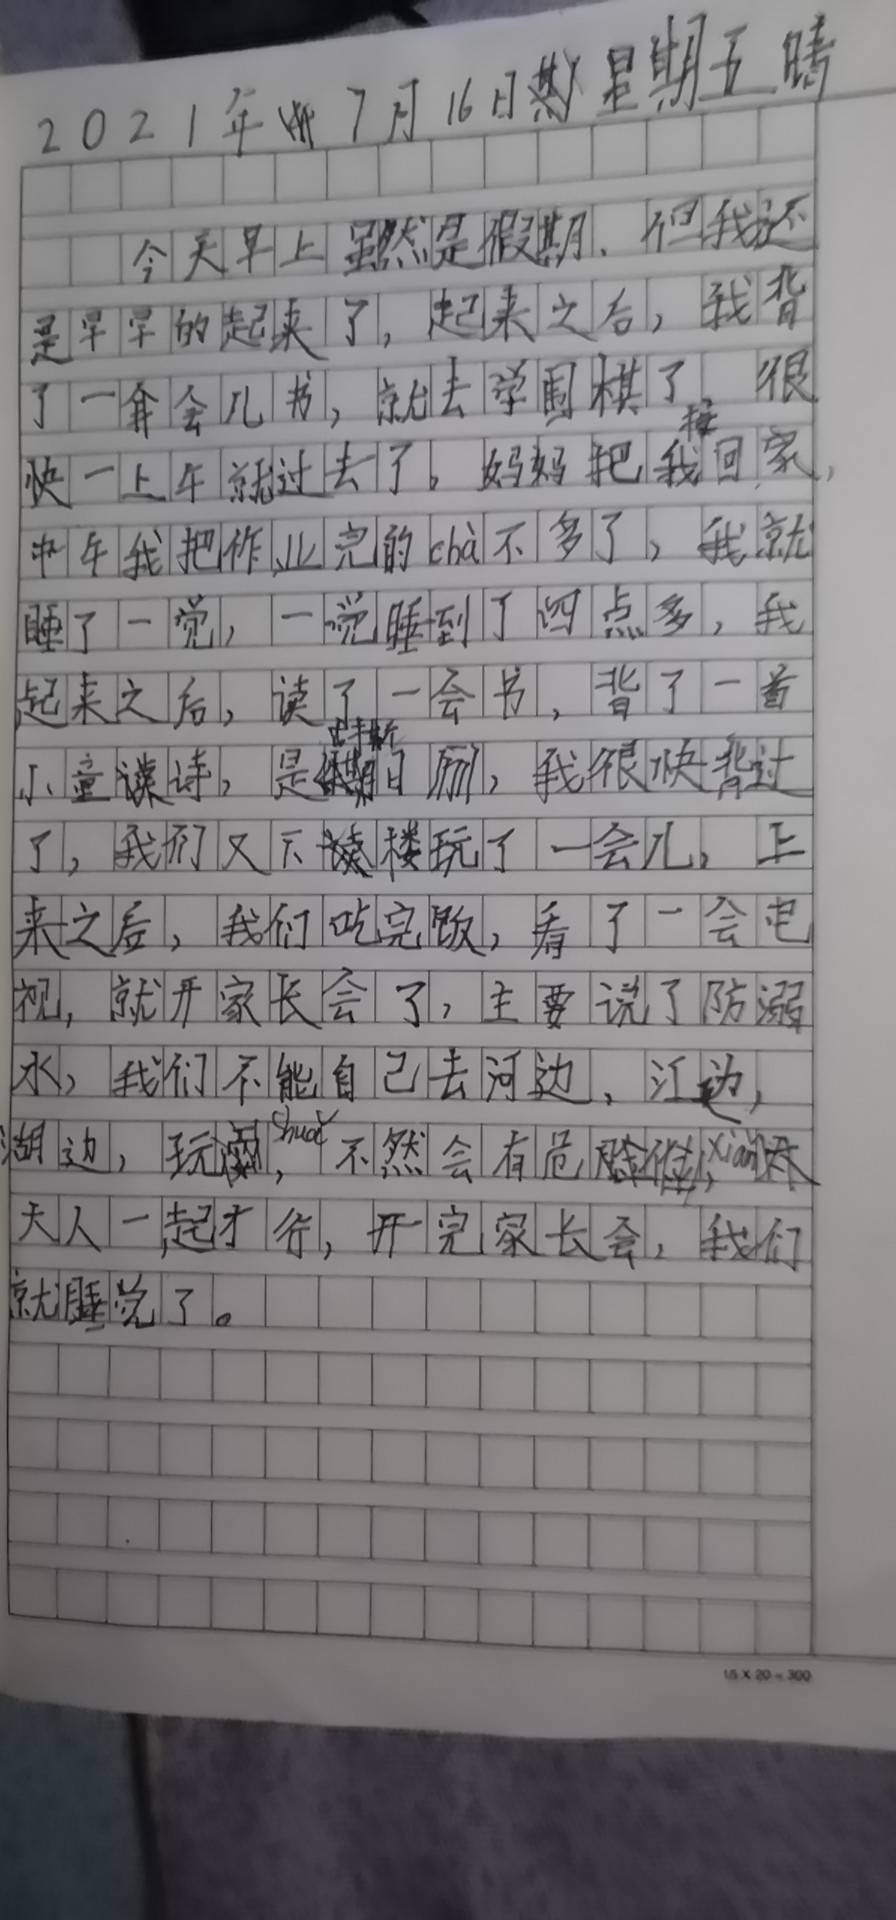 2021年7月16日星期五晴
今天早上虽然是假期、但我还
是早早的起来了，起来之后，我背
了一会儿书，就去学围棋了 很
快一上午就过去了，妈妈把我接回家，
中午我把作业完的chà不多了，我就
睡了一觉，一觉睡到了四点多，我
起来之后，读了一会书，背了一首
小童谣诗，是日历，我很快背过
了，我们又下楼玩了一会儿，上
来之后，我们吃完饭，看了一会电
视，就开家长会了，主要说了防溺
水，我们不能自己去河边、江边，
湖边，玩shuǎ，不然会有危xiǎn，
大人一起才行，开完家长会，我们
就睡觉了。
15×20=300